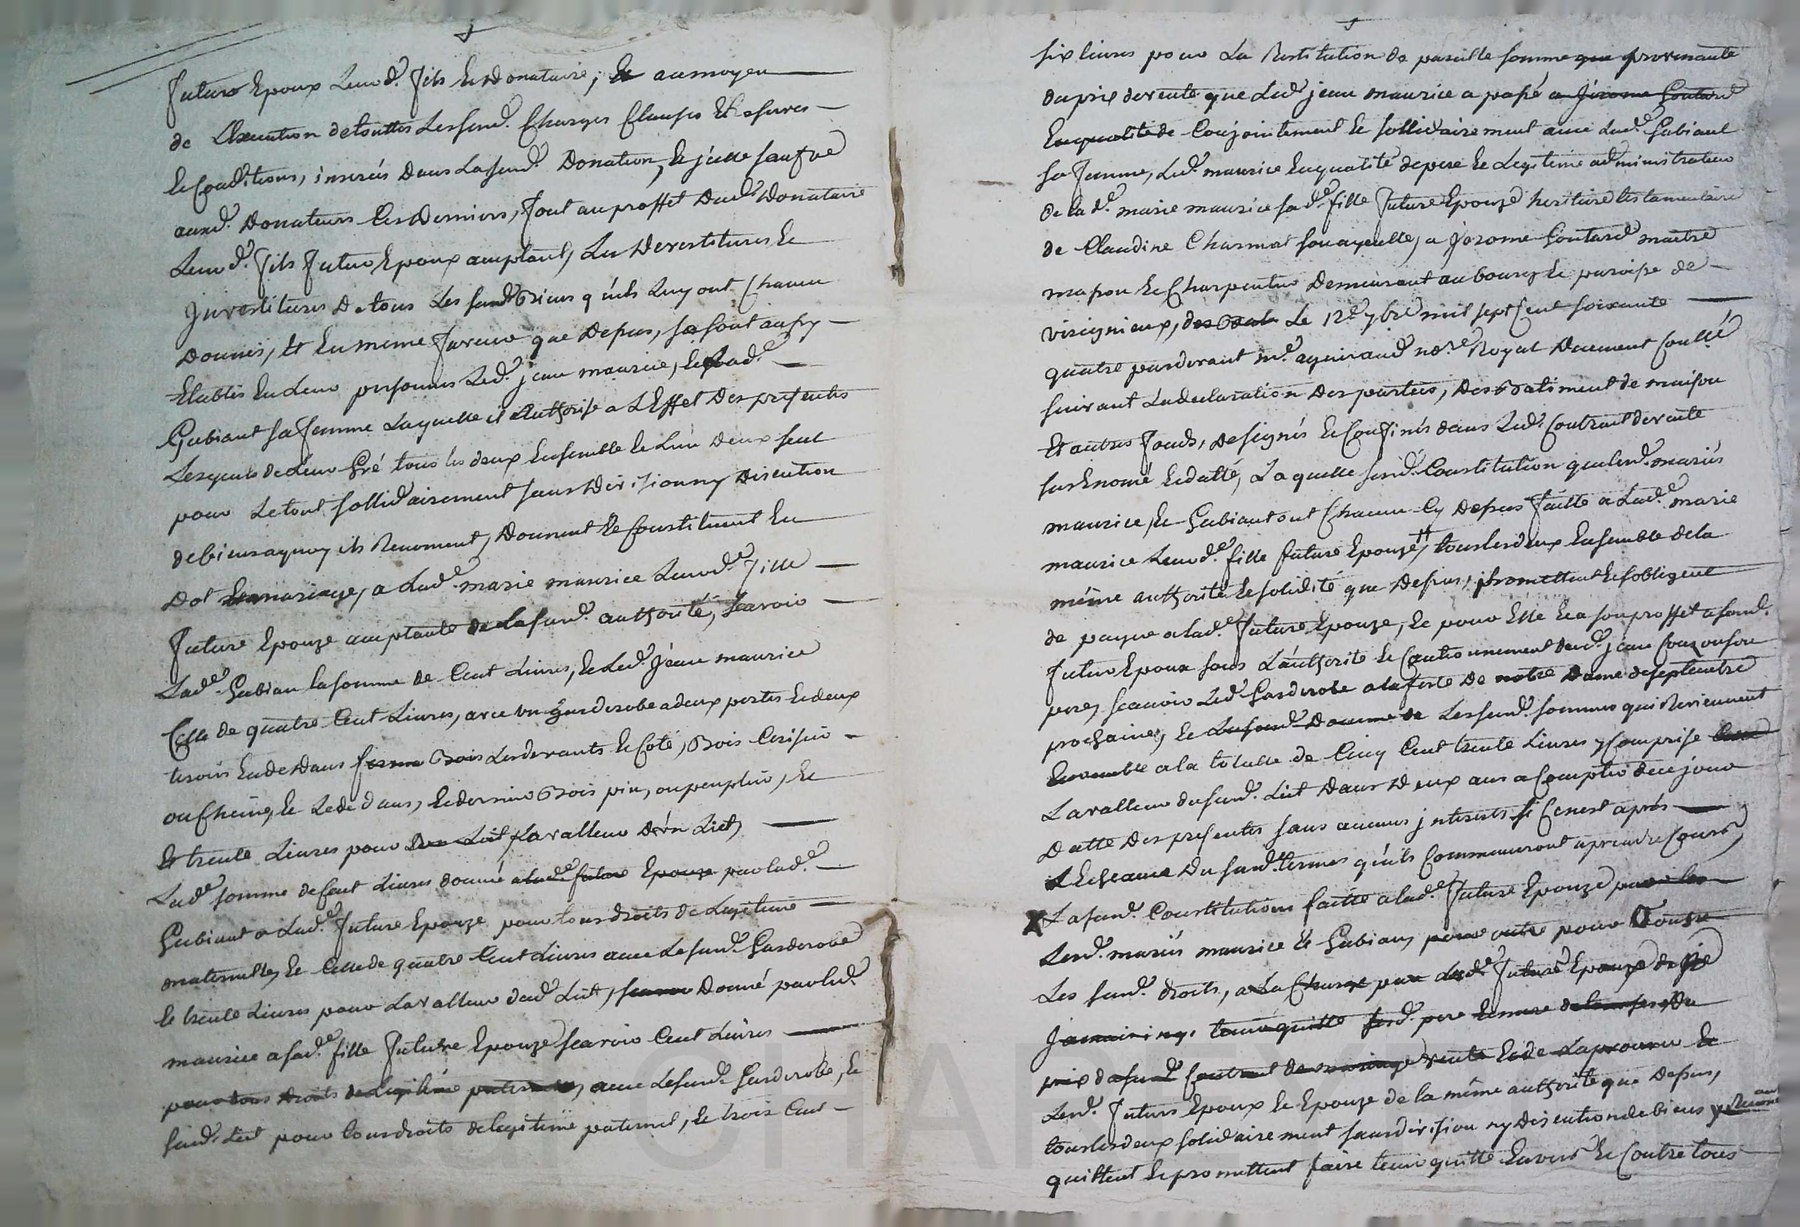 futur Epoux Leurd. fils Et donataire, Et aumoyen
de L'Execution detouttes Lesfusd. Charges Clauses Et reserves
Et Conditions, inserés dans Lasusd. Donation, Et j'celle sauf que
auxd. Donateurs Ces derniers, font auproffit Dud. Donataire
Leurd. fils futur Epoux acceptant, Les Devestitures Et
Investitures De tous Les susd. Biens qu'ils Luy ont Chacun
Donnés, Et Enmeme faveur que Depus, se sont aussy
Etablis En Leur personnes Led. jean maurice, Et Lad.
Gubiant sa femme Laquelle il authorise a L'Effet Des presentes
Lesquels de Leur Gré tous les deux Ensemble Et L'un d'eux seul
pour Le tout sollidairement sans Division ny Discution
de biens aquoy ils Renoncent, Donnent Et Constituent En
Dot Et mariage, a Lad. marie maurice Leurd. fille
future Epouze acceptante de Lasusd. authorité, Scavoir
Lad. Gubian lasomme de Cent Livres, Et Led. Jean maurice
Celle de quatre Cent Livres, avec un garderobe adeux portes Et deux
tiroirs En dedans Bois Lesdevants Et Coté, Bois Cerisier
ou Chêne, Et Le dedans, Et derrier Bois pin, ou peuplier, Et
Et trente Livres pour La valleur d'un Lict,
Lad. somme de Cent Livres donné a lad. future Epouze par lad.
Gubiant a Lad. future Epouze pour tous droits de Legitime
maternelle, Et Celle de quatre Cent Livres avec Lesusd. Garderobe
Et trente Livres pour La valleur dud. Lict, Donné par led.
maurice a sad. fille future Epouze scavoir Cent Livres
pour tous droits de Legitime paternelle, avec Lesusd. Garderobe, Et
susd. Lict pour tous droits de legitime paternel, Et trois Cent
six livres pour La Restitution de pareille somme que provenante
du prix de vente que Led. jean maurice a passé a Jerome Goutard
En qualité de Conjointement Et sollidairement avec Lad. Gubiant
sa femme, Led. maurice En qualité de pere Et Legitime administrateur
de lad. marie maurice sad. fille future Epouze heritiere testamentaire
de Claudine Charmat son ayeulle, a Jerome Goutard maitre
masson Et Charpentier Demeurant au bourg Et paroisse de
viricignieux, Le 12e 7bre mil sept Cent soixante
quatre pardevant me. aguiraud nore. Royal Duement Controllé
suivant La declaration Des parties, Des Batiment de maison
Et autres fonds, designés Et Confinés dans Led. Contract de vente
sus Enomé Et datté, Laquelle susd. Constitution que lesd. mariés
maurice, Et Gubiant ont Chacun Cy depus faitte a Lad. marie
maurice Leurd. fille future Epouze, tous les deux Ensemble de la
même authorité Et solidité que Depus, promettent Et s'obligent
de payer a lad. future Epouze, Et pour Elle Et a son proffet a sond.
futur Epoux sous L'authorité Et Cautionnement dud. jean
pere, scavoir Led. Garderobe a la feste De notre Dame de septembre
prochaine, Et Lesusd. sommes qui Reviennent
Ensemble a la totalle de Cinq Cent trente Livres y Comprise
La valleur du susd. Lict Dans Deux ans a Compter de ce jour
Datte Des presentes sans aucuns jnterets si Ce n'est aprés
L'Echeance Du susd. termes qu'ils Commenceront a prendre Cours
X La susd. Constitution faitte a lad. future Epouze
Lesd. mariés maurice Et Gubian, pour
Les susd. droits, a La Charge par Lad. future Epouze
tenir quitte
prix
Lesd. futurs Epoux Et Epouze de la même authorité que Depus,
tous les deux solidairement sans division ny discution de biens y Renoncant
quittent Et promettent faire tenir quitte Envers Et Contre tous
CHAREY